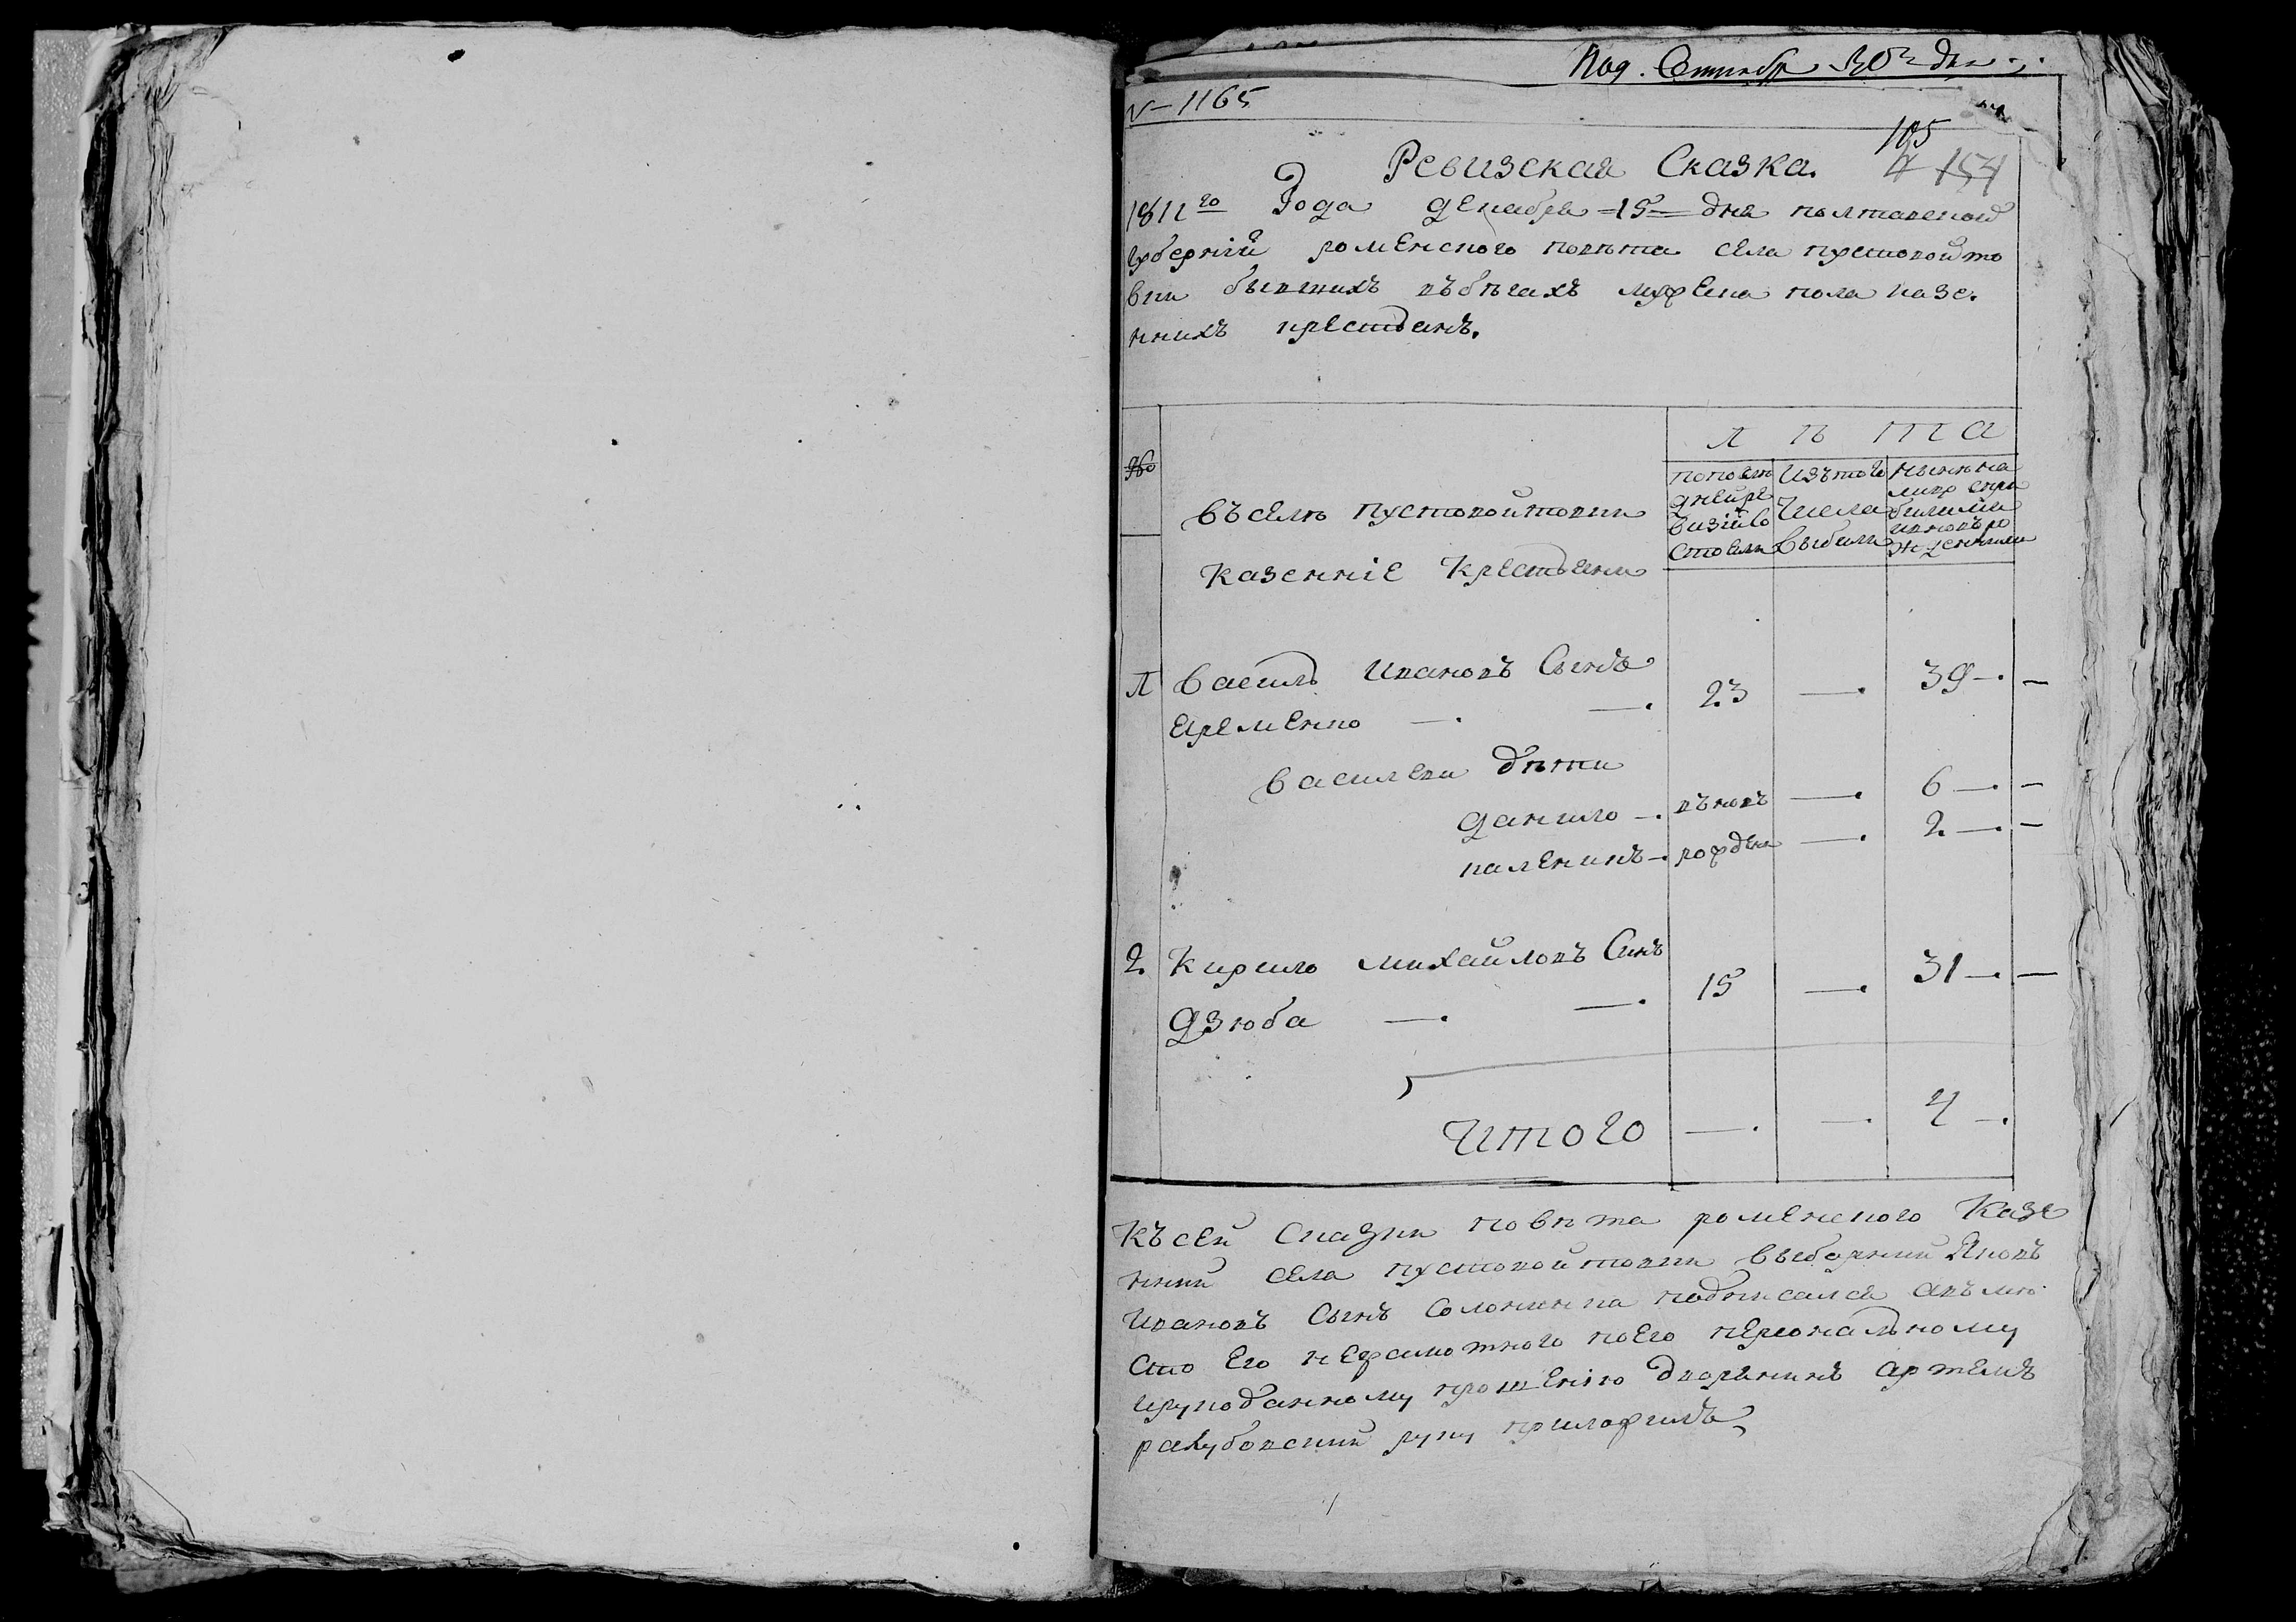 Под. Сентябр 30го дня
№ 1165
105
154
Ревизская Сказка.
1811го Года декабря 15 дня полтавской
губернїи роменского повѣта села пустовойто
вки бывшихъ въбѣгахъ мужеска пола казе.
ннихъ крестьянъ.
№
Въселѣ пустовойтовки
Казеннїе Крестьяни
Л ѣ т а
пополѣ
дней ре
визїи со
стояли
Изътого
Числа
выбыли
нынѣ на
лицо спри
былими
ивновь ро
жденними
Л Василь Ивановъ Сынъ
Еременко 23 — 39
василеви дѣти
данило — вновь — 6
каленикъ — рожден — 2
2. Кирило михайловъ Синъ
дзюба 15 — 31
Итого — — 4
Къ сей сказки повѣта роменского Казе
нний села пустовойтовки выборний Яковъ
Ивановъ Сынъ Солонина подписался авъмѣ
сто Его неграмотного поЕго персональному
ирукоданному прошенїю дворянинъ артемъ
ракубовский руку приложилъ